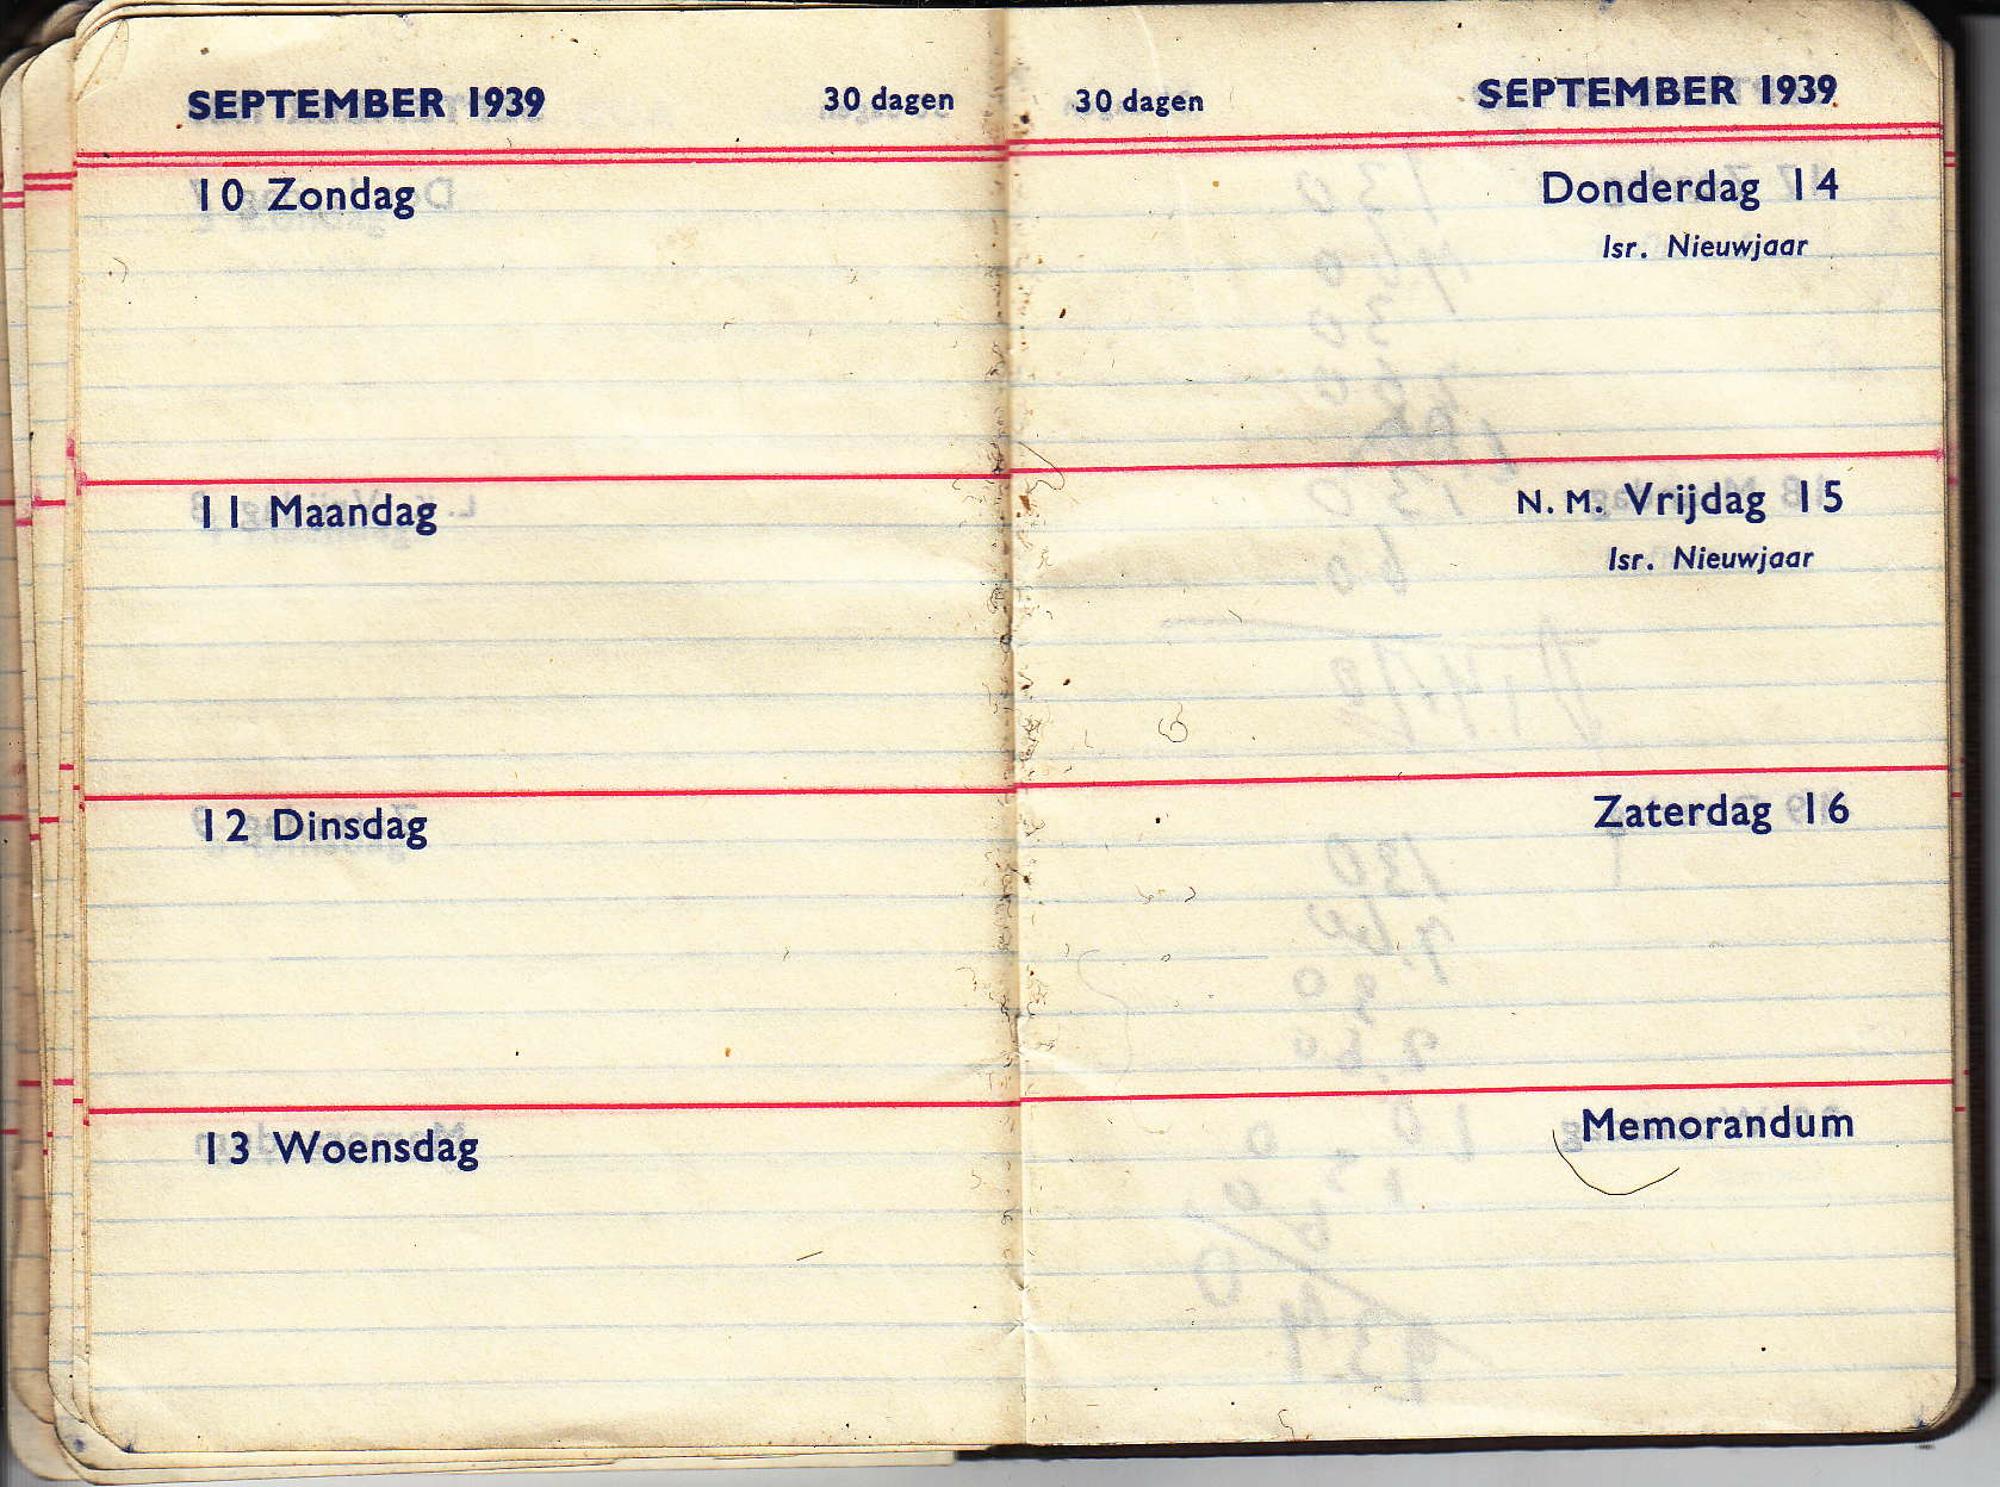 SEPTEMBER 1939 30 dagen
10 Zondag
11 Maandag
12 Dinsdag
13 Woensdag
30 dagen SEPTEMBER 1939
Donderdag 14
Isr. Nieuwjaar
N. M. Vrijdag 15
Isr. Nieuwjaar
Zaterdag 16
Memorandum